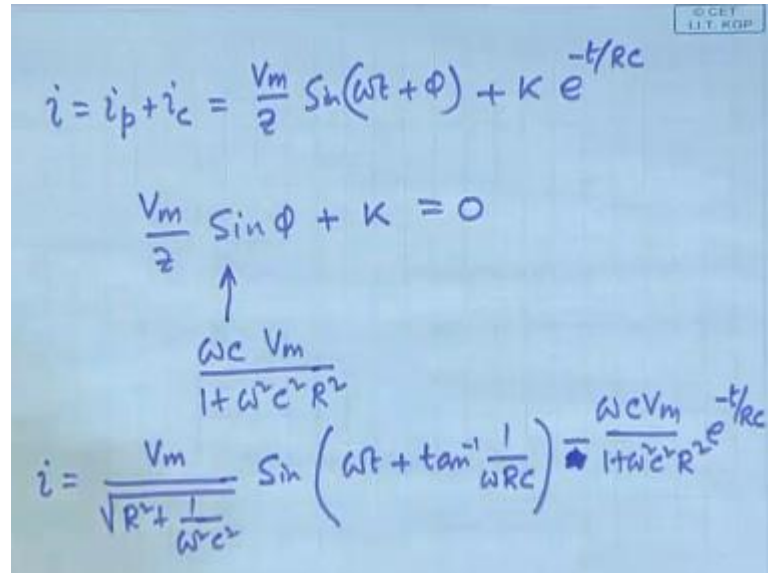 © CET
I.I.T. KGP
i = i_p + i_c = V_m/Z Sin(ωt + Φ) + K e^{-t/RC}
V_m/Z Sin Φ + K = 0
↑
ωC V_m / 1 + ω²C²R²
i = V_m / √(R² + 1/ω²C²) Sin(ωt + tan⁻¹ 1/ωRC) - ωCV_m / 1 + ω²C²R² e^{-t/RC}